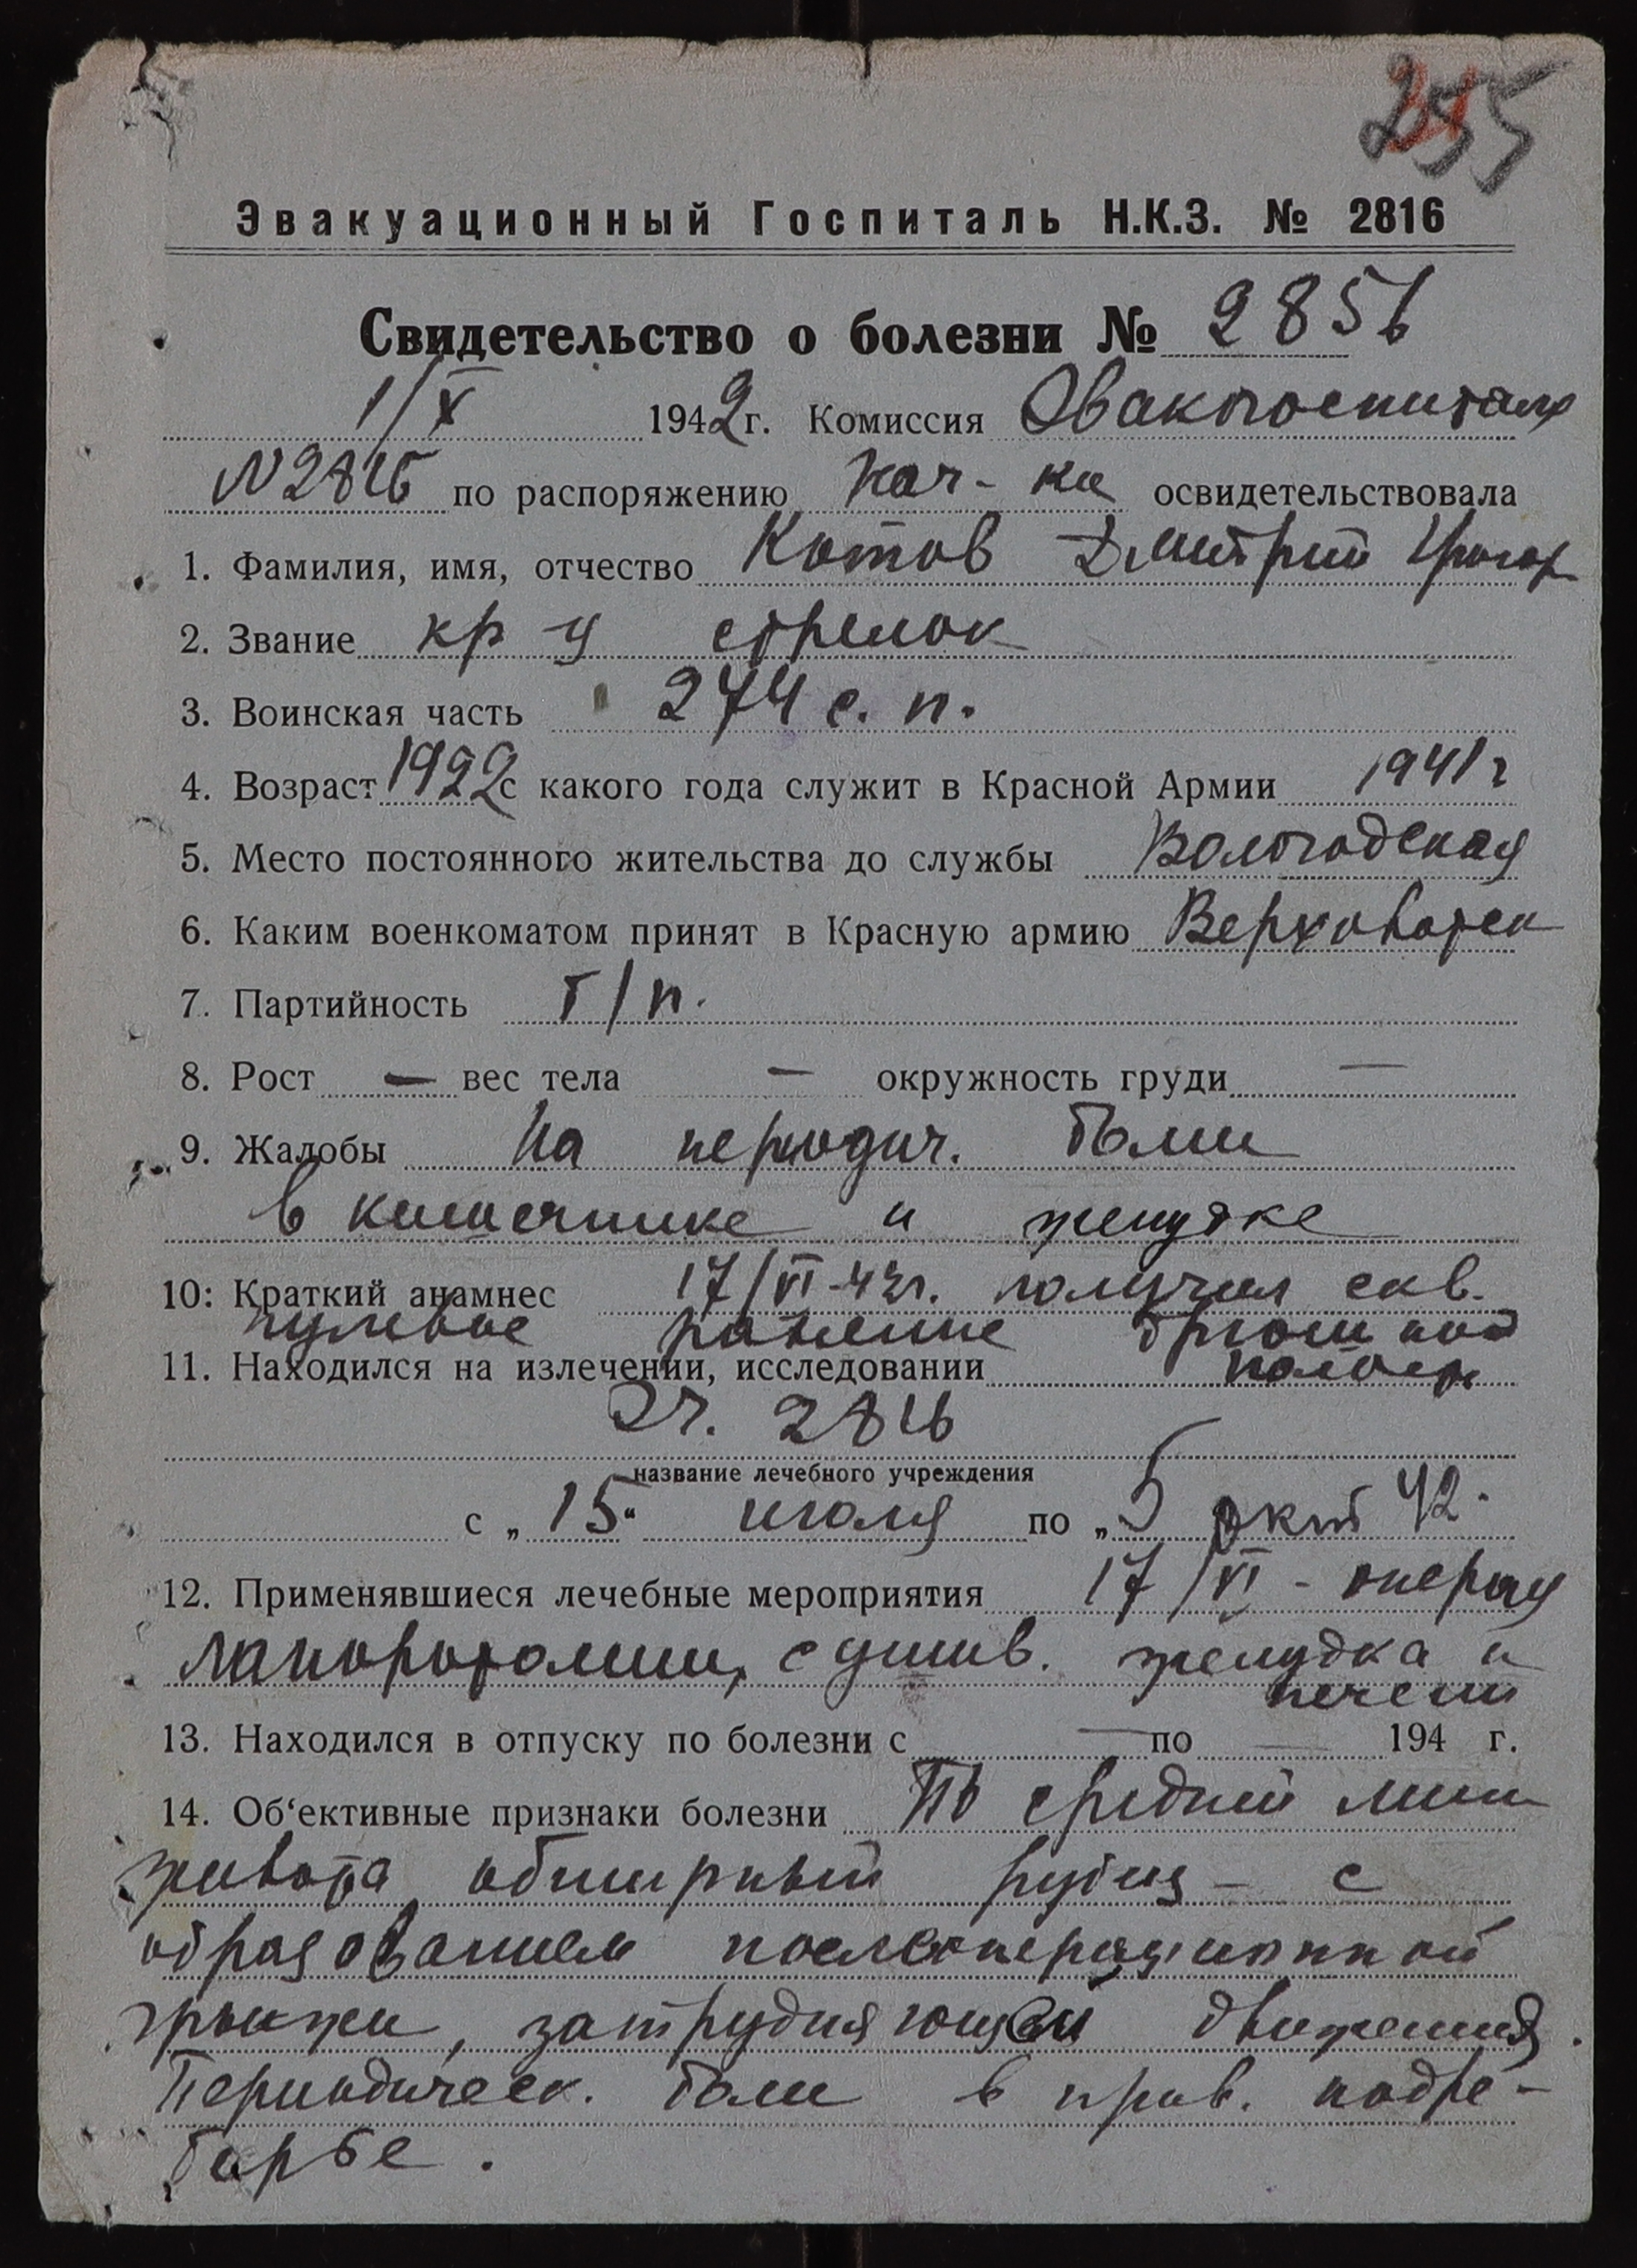 255
Эвакуационный Госпиталь Н.К.З. № 2816
Свидетельство о болезни № 2856
1/X 1942 г. Комиссия Эвакогоспиталя
N 2816 по распоряжению нач-ка освидетельствовала
1. Фамилия, имя, отчество Котов Дмитрий Григор
2. Звание кр-ц стрелок
3. Воинская часть 274 с. п.
4. Возраст 1922 с какого года служит в Красной Армии 1941 г
5. Место постоянного жительства до службы Вологодская
6. Каким военкоматом принят в Красную армию Верховажск
7. Партийность б/п.
8. Рост — вес тела — окружность груди —
9. Жалобы на периодич. боли
в кишечнике и желудке
10: Краткий анамнес 17/VI-42г. получил скв.
пулевое ранение брюшной
11. Находился на излечении, исследовании полости
ЭГ. 2816
название лечебного учреждения
с „15“ июля по „5 окт 42.
12. Применявшиеся лечебные мероприятия 17/VI - операц
лапоротомии, с ушив. желудка и
печени
13. Находился в отпуску по болезни с — по — 194 г.
14. Об‘ективные признаки болезни По средней линии
живота обширный рубец - с
образованием послеоперационной
грыжи, затрудняющей движения.
Периодическ. боли в прав. подре-
берье.